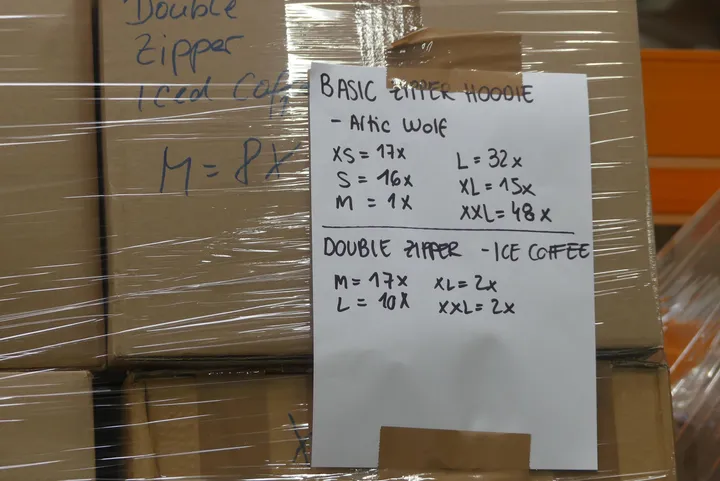 Double
Zipper
Iced Coff
M = 8X
BASIC ZIPPER HOODIE
- Artic Wolf
XS = 17x
S = 16x
M = 1x
L = 32x
XL = 15x
XXL = 48x
DOUBLE ZIPPER - ICE COFFEE
M = 17x
L = 10x
XL = 2x
XXL = 2x